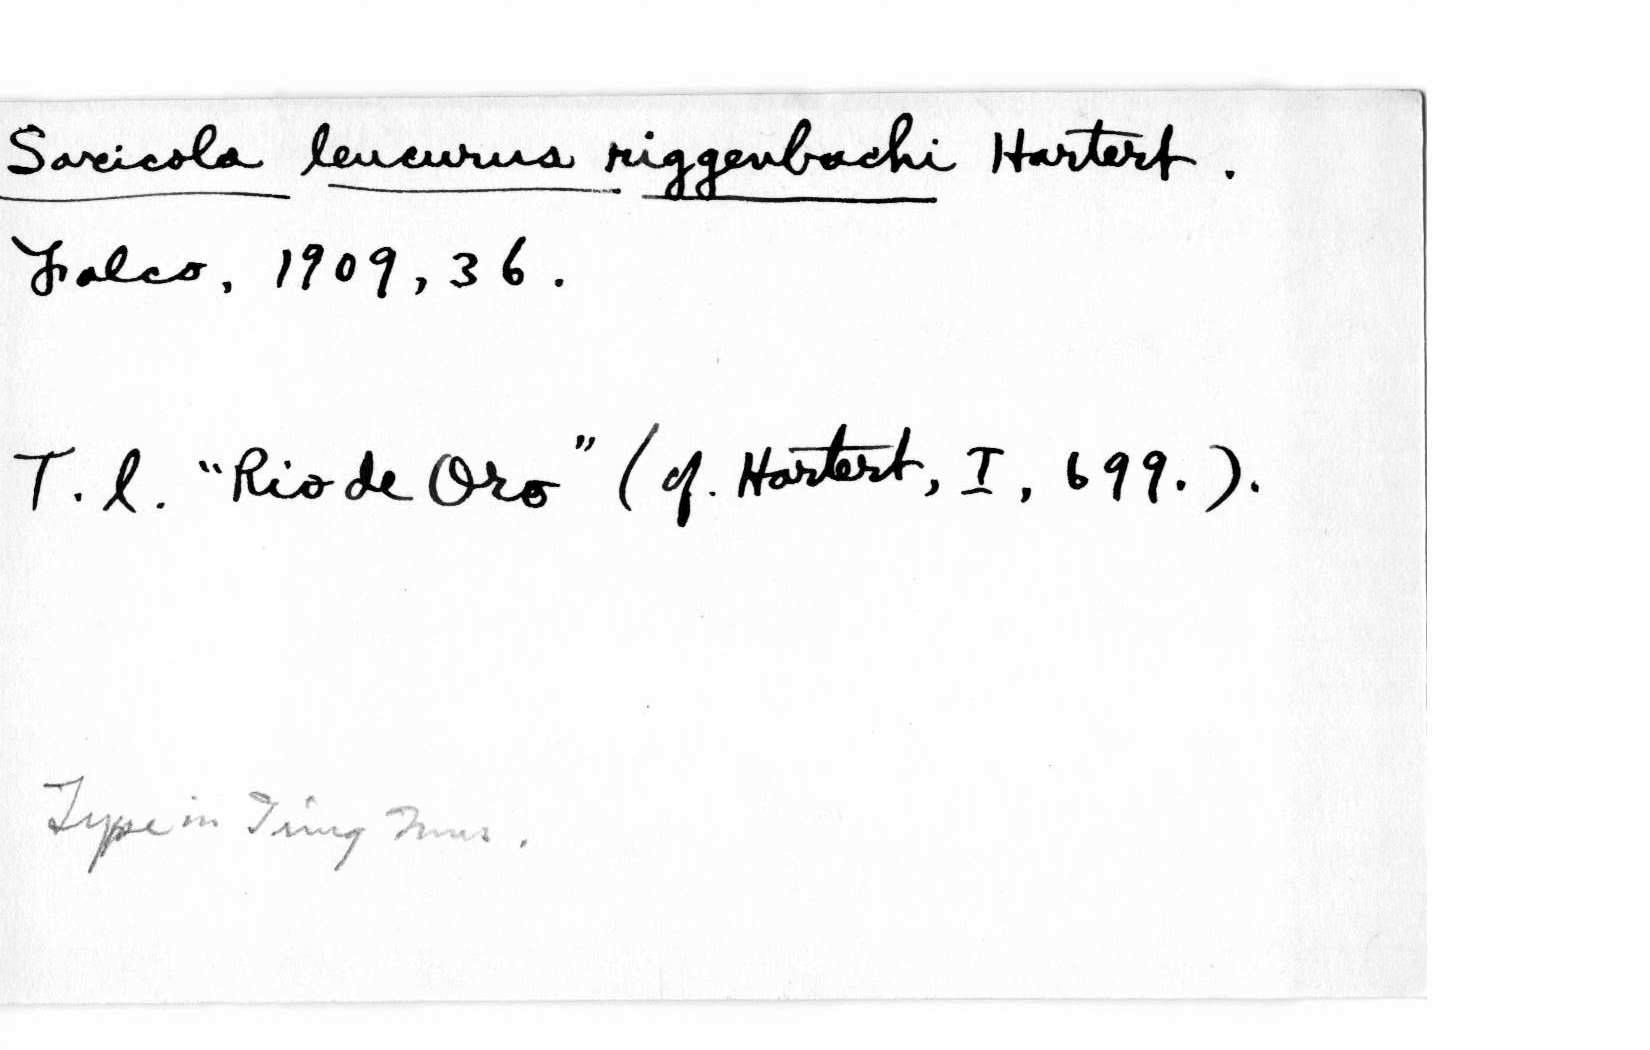 Saxicola leucurus riggenbachi Hartert.
Falco, 1909, 36.
T. l. "Rio de Oro" (cf. Hartert, I, 699.).
Type in Tring Mus.